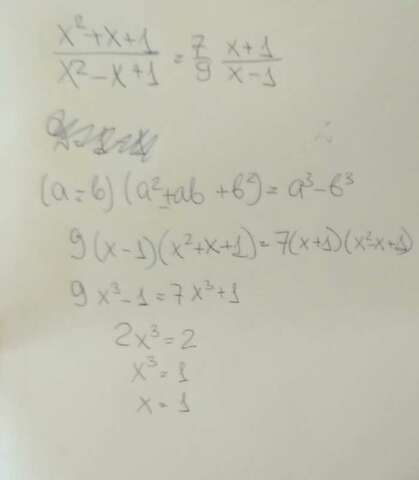 x²+x+1 / x²-x+1 = 7/9 x+1 / x-1
(a=b)(a²±ab+b²)=a³-b³
9(x-1)(x²+x+1)=7(x+1)(x²-x+1)
9x³-1=7x³+1
2x³=2
x³=1
x=1